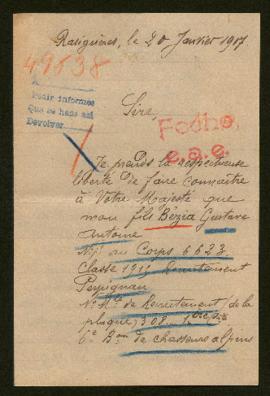 Rasiguères, le 20 Janvier 1917
49538
Pedir informes
Que se haga así
Devolver
Sire,
Fecho,
e.a.e.
Je prends la respectueuse
liberté de faire connaître
à Votre Majesté que
mon fils Bézia Gustave
Antoine
au Corps 6623
Classe 1914 Recrutement
Perpignan
N° de Recrutement, de la
plaque, 308
6e Bon de chasseurs alpins